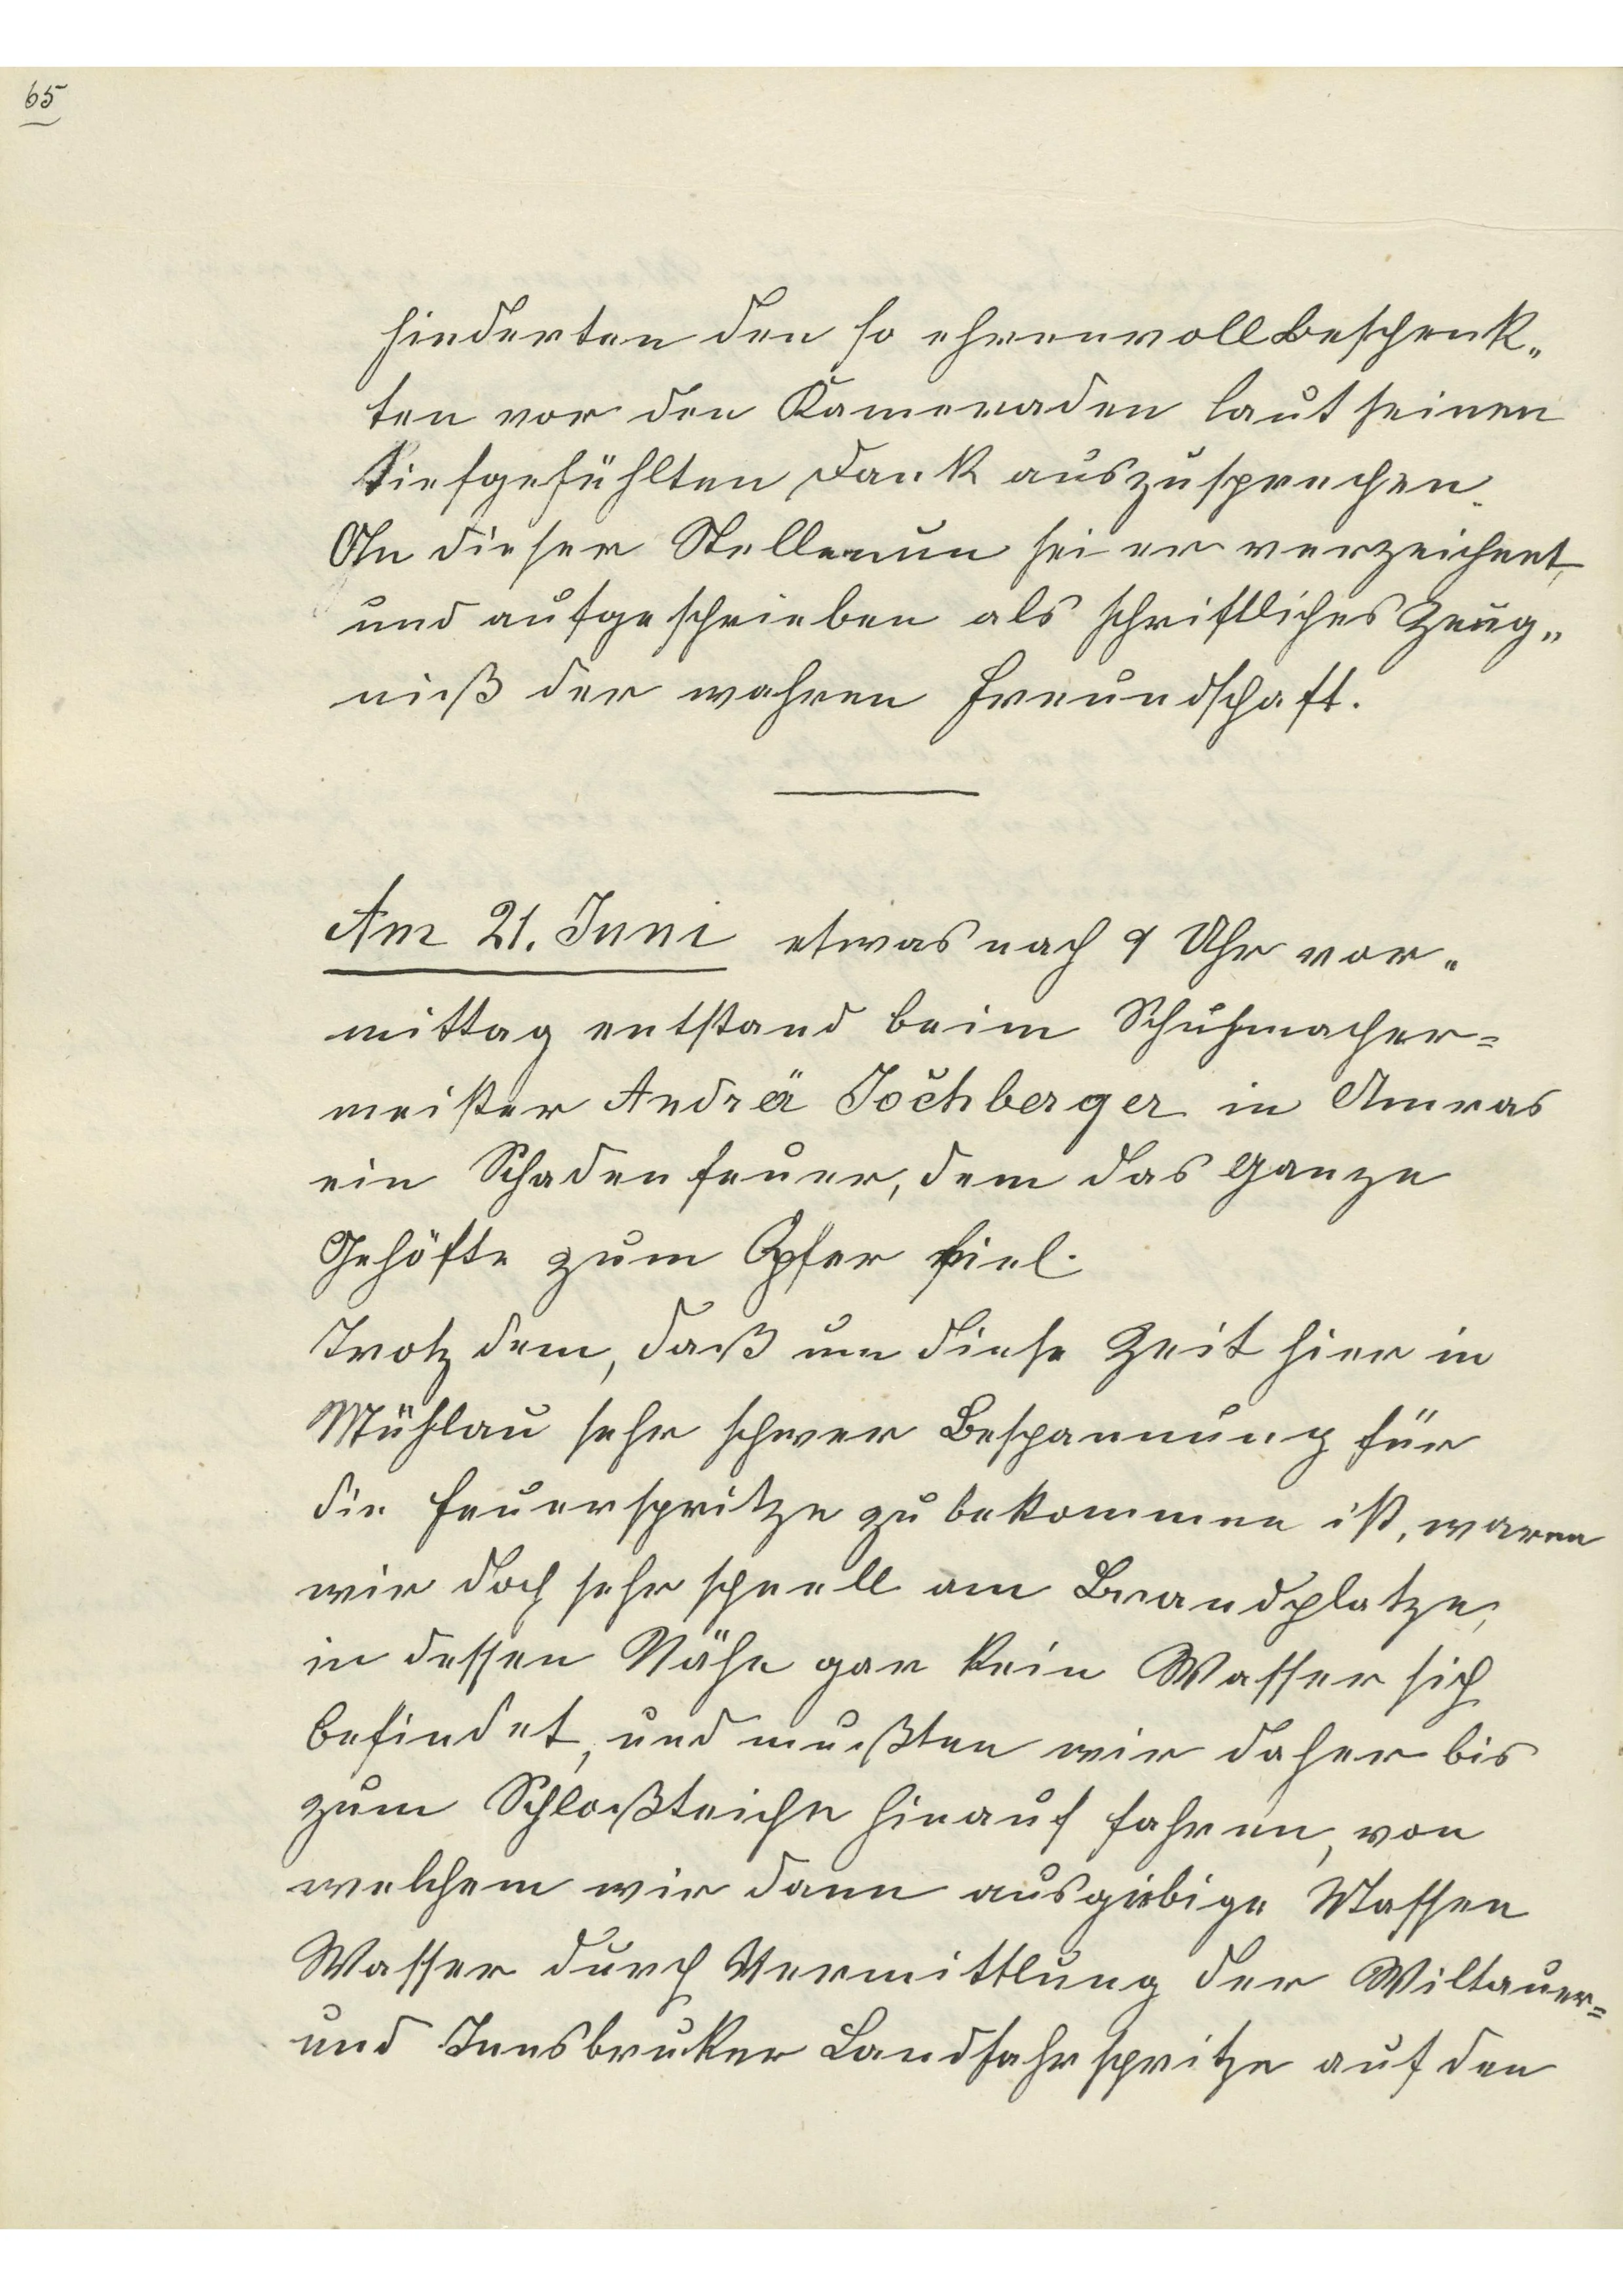 65
hinderten den so ehrenvoll Beschenk„
ten vor den Kameraden laut seinen
tiefgefühlten Dank auszusprechen.
An dieser Stelle nun sei er verzeichnet,
und aufgeschrieben als schriftliches Zeug„
niß der wahren Freundschaft.
Am 21. Juni etwas nach 9 Uhr vor„
mittag entstand beim Schuhmacher=
meister Andrä Jöchberger in Amras
ein Schadenfeuer, dem das ganze
Gehöfte zum Opfer fiel.
Trotz dem, daß um diese Zeit hier in
Mühlau sehr schwer Bespannung für
die Feuerspritze zu bekommen ist, waren
wir doch sehr schnell am Brandplatze,
in dessen Nähe gar kein Wasser sich
befindet, und mußten wir daher bis
zum Schloßteiche hinauf fahren, von
welchem wir dann ausgiebige Massen
Wasser durch Vermittlung der Wiltauer=
und Innsbruker Landfahrspritze auf den